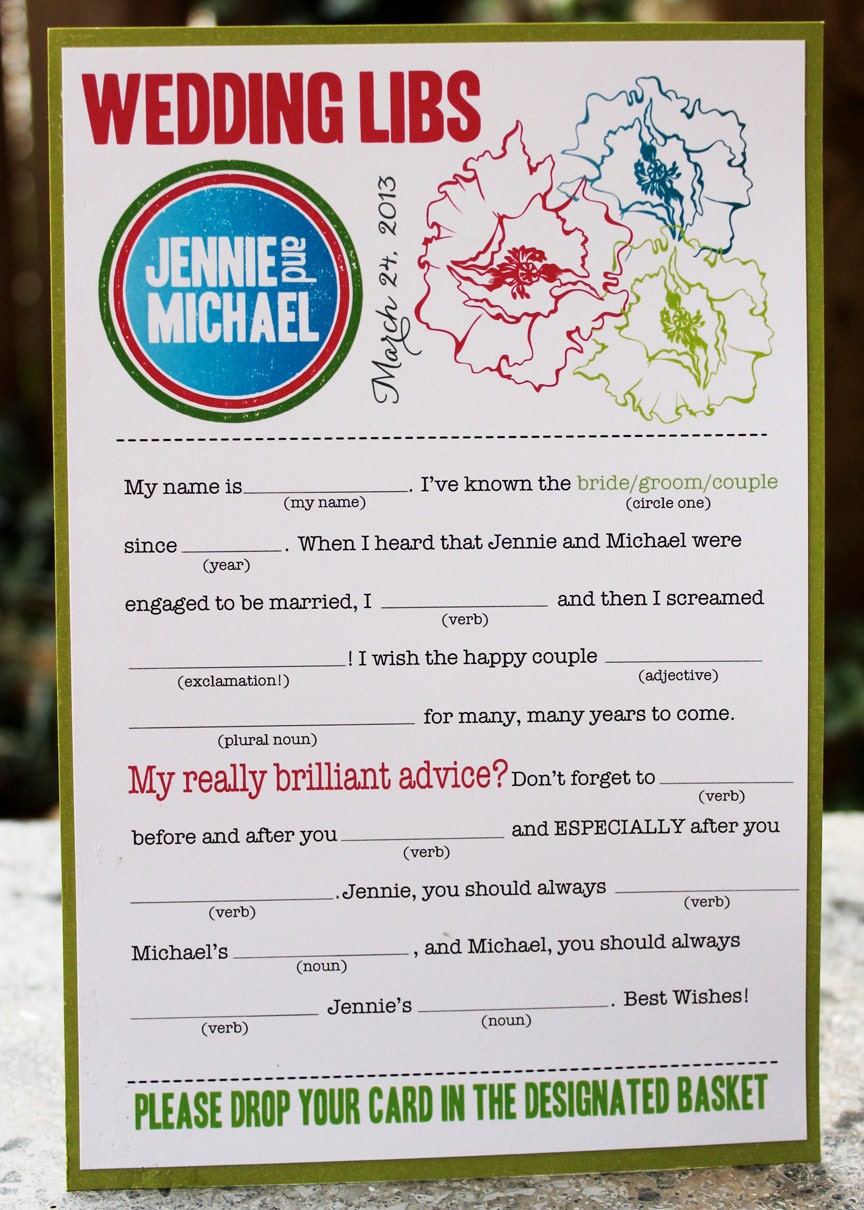 WEDDING LIBS
JENNIE and
MICHAEL
March 24, 2013
My name is____________. I've known the bride/groom/couple
(my name) (circle one)
since ________. When I heard that Jennie and Michael were
(year)
engaged to be married, I ____________ and then I screamed
(verb)
________________! I wish the happy couple ____________
(exclamation!) (adjective)
____________________ for many, many years to come.
(plural noun)
My really brilliant advice? Don't forget to __________
(verb)
before and after you ____________ and ESPECIALLY after you
(verb)
_______________. Jennie, you should always ______________
(verb) (verb)
Michael's _____________, and Michael, you should always
(noun)
______________ Jennie's ______________. Best Wishes!
(verb) (noun)
PLEASE DROP YOUR CARD IN THE DESIGNATED BASKET